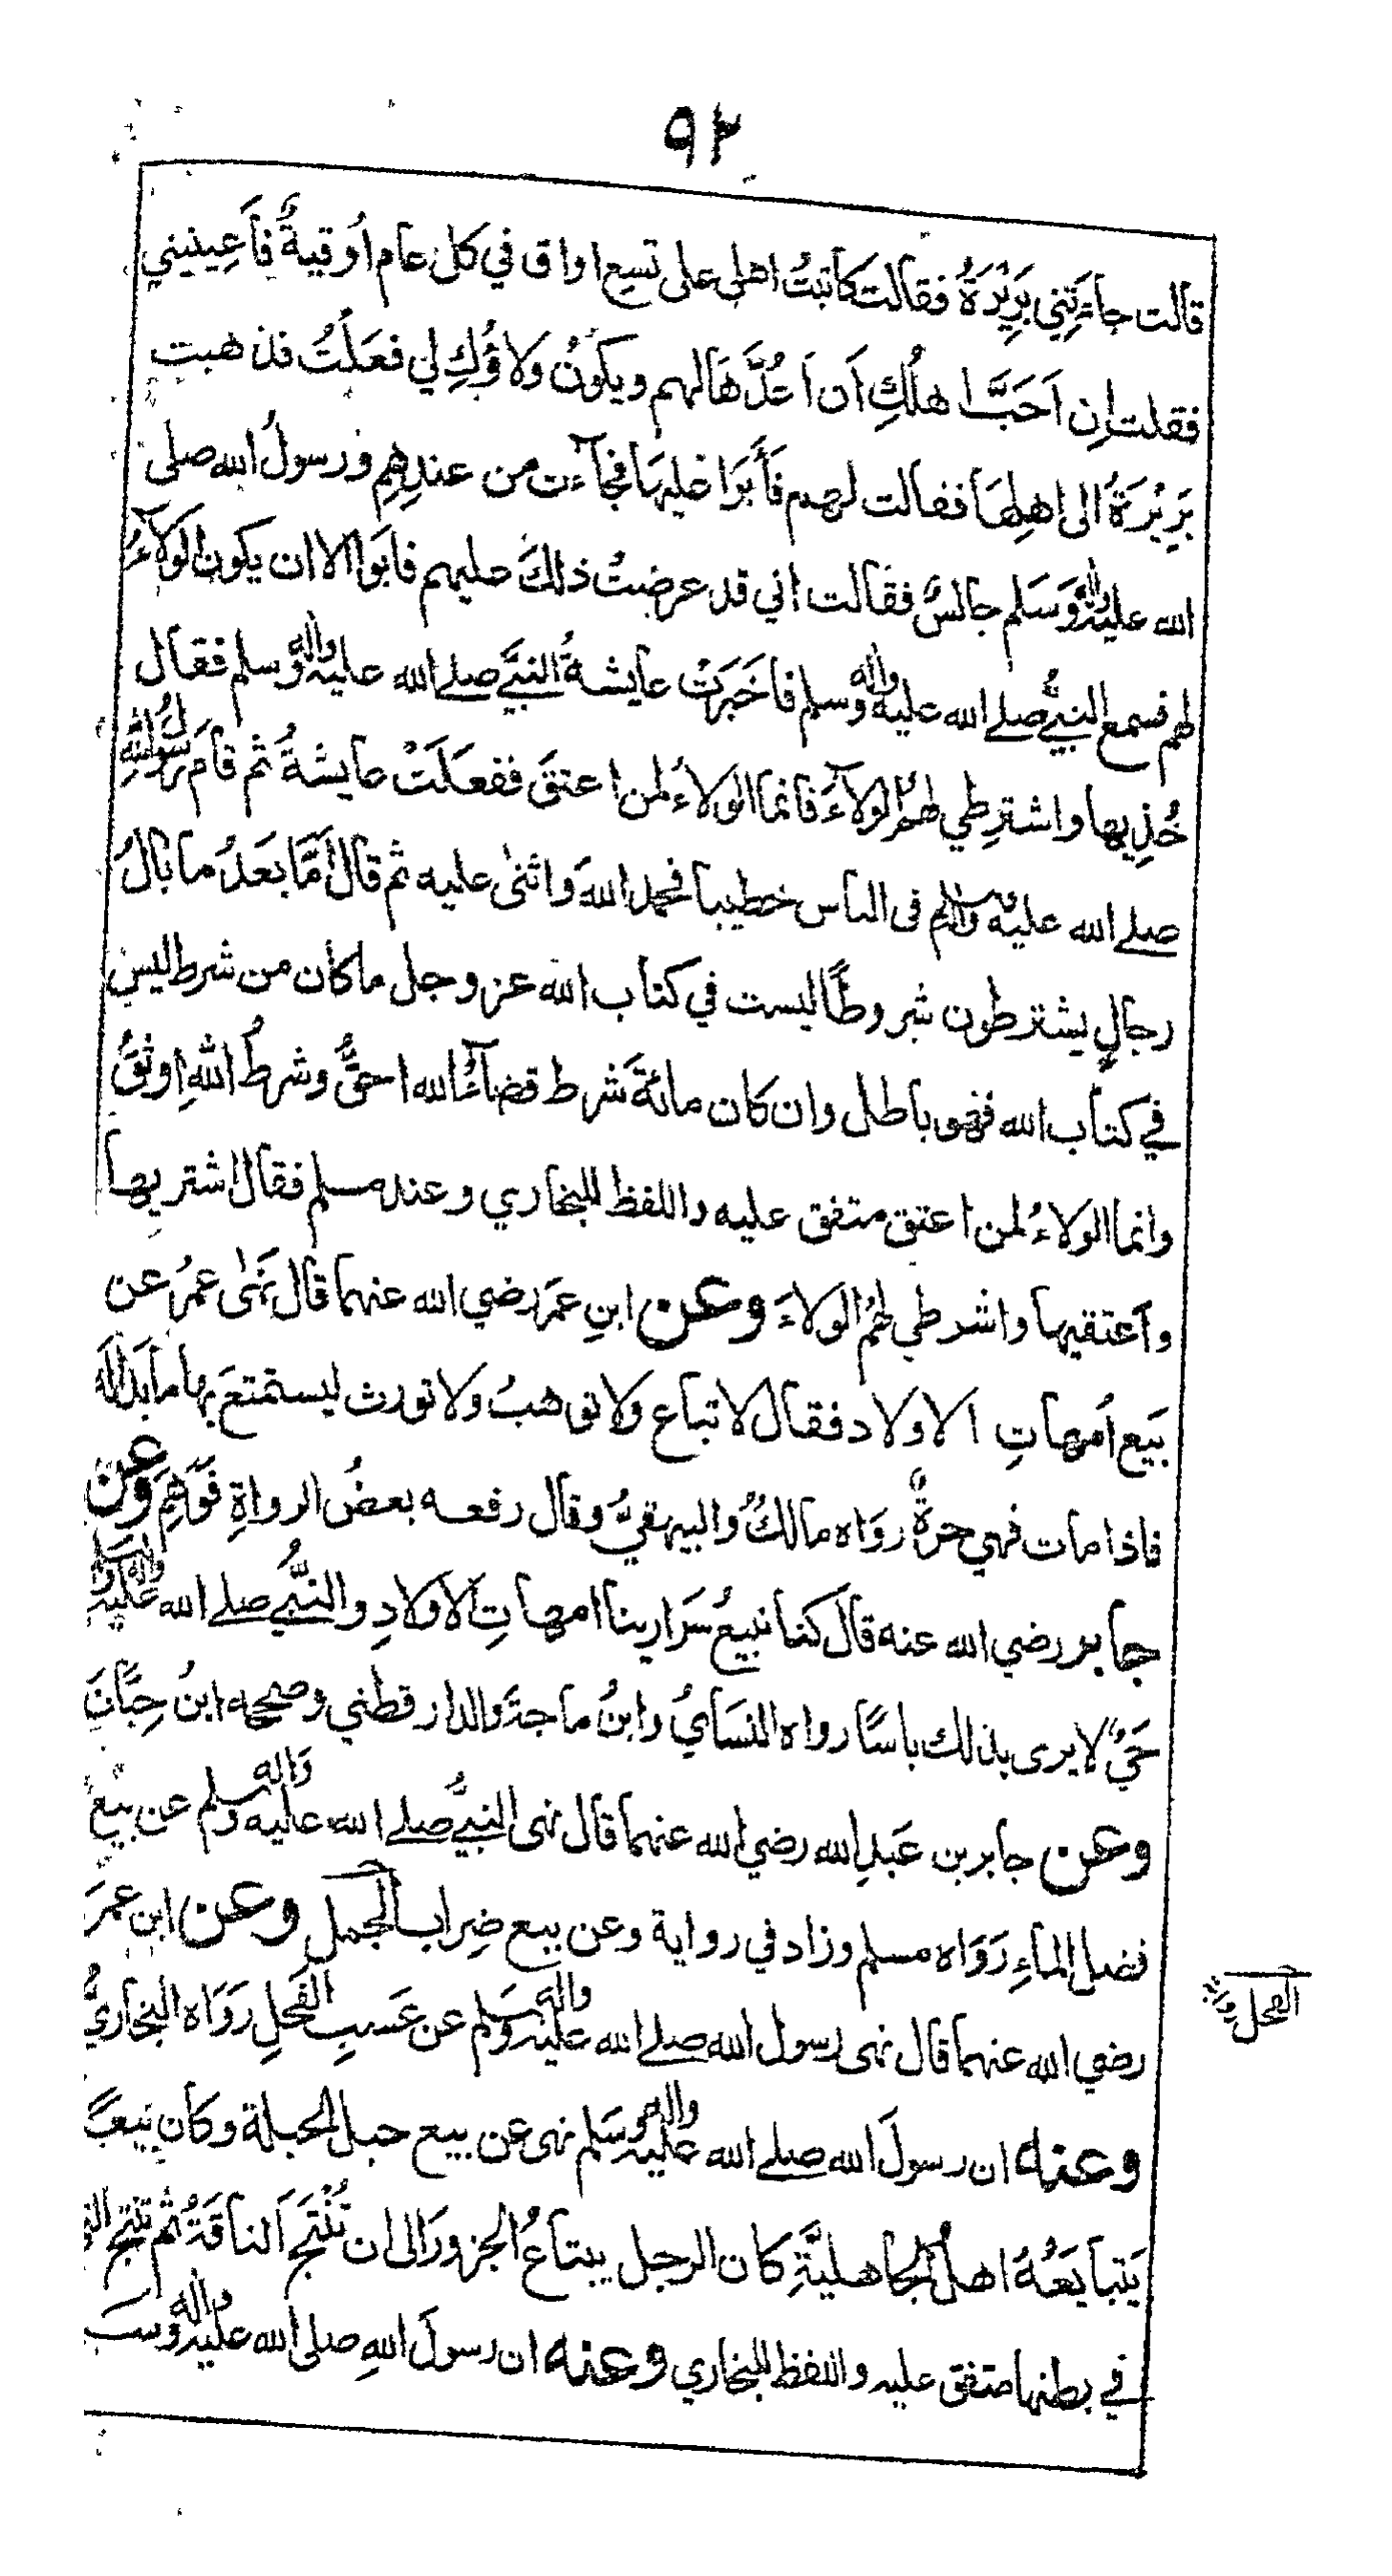 ٩٢
قالت جاءَتني بَرِيْرَةُ فقالت كاتبتُ اهلي على تسع اواق في كل عام اُوقيةٌ فاَعِينيني
فقلت اِن اَحَبَّ اهلُكِ اَن اَعُدَّهَا لهم ويكونُ ولاؤُكِ لي فعَلتُ فذهبت
بَرِيْرَةُ الى اهلِهَا فقالت لهم فأَبَوَا عليهَا فجآءت من عندِهِم ورسولُ الله صلى
الله عليه واله وَسَلم جالسٌ فقالت اني قد عرضتُ ذلكَ عليهم فابَوا الا ان يكون الولآءُ
لهم فسمع النبيُّ صلے الله عليه واله وسلم فاخَبَرَتْ عايشةُ النبيَّ صلے الله عليه واله وسلم فقال
خُذِيها واشترِطي لهمُ الولآءَ فانما الولاءُ لمن اعتقَ ففعَلَتْ عايشةُ ثم قامَ رسولُ اللهِ
صلے الله عليه واله وسلم فى الناس خطيبا فحمد اللهَ واثنى عليه ثم قال اَمَّا بعَدُ ما بالُ
رجالٍ يشترطون شروطًا ليست في كتاب الله عز وجل ما كان من شرط ليس
في كتاب الله فهو باطل وان كان مائةَ شرط قضآءُ الله احقُّ وشرطُ اللهِ اوثقُ
وانما الولاءُ لمن اعتق متفق عليه واللفظ للبخاري وعند مسلم فقال اشتريها
واَعتقيها واشرطي لهُم الولاءَ وعن ابنِ عمَرَ رضي الله عنهما قال نَهَى عمرُ عن
بَيع اُمهاتِ الاولاد فقال لا تباع ولا توهبُ ولا تورث ليستمتعَ بها ما بَدا لَه
فاذا مات فهي حرةٌ روَاه مالكٌ والبيهقيُّ وقال رفعه بعضُ الرواةِ فوَهِمَ وعن
جابر رضي الله عنه قال كنا نبيعُ سَرَارِينا امهاتِ الاولادِ والنَّبيُّ صلے الله عليه واله وسلم
حَيٌّ لا يرى بذلك باسًا رواه النسَايُ وابنُ ماجةَ والدارقطني وصححه ابنُ حِبَّانَ
وعن جابر بن عَبدِ الله رضي الله عنهما قال نهى النبيُّ صلے الله عليه واله وسلم عن بَيْع
فضل الماءِ رَوَاه مسلم وزاد في رواية وعن بيع ضِراب الجمل وعن ابن عمرَ
رضي الله عنهما قال نهى رسول الله صلے الله عليه واله وسَلم عن عَسبِ الفَحلِ رَوَاه البخاريُّ
الفحل
وعنه ان رسولَ الله صلے الله عليه واله وسَلم نهى عن بيع حبل الحبلة وكان بيعًا
يَتبايَعُهُ اهلُ الجاهليَّةِ كان الرجل يبتاعُ الجزورَ الى ان تُنْتَجَ الناقَةُ ثم تنتج
في بطنها متفق عليه واللفظ للبخاري وعنه ان رسولَ اللهِ صلى الله عليه واله وسَـ